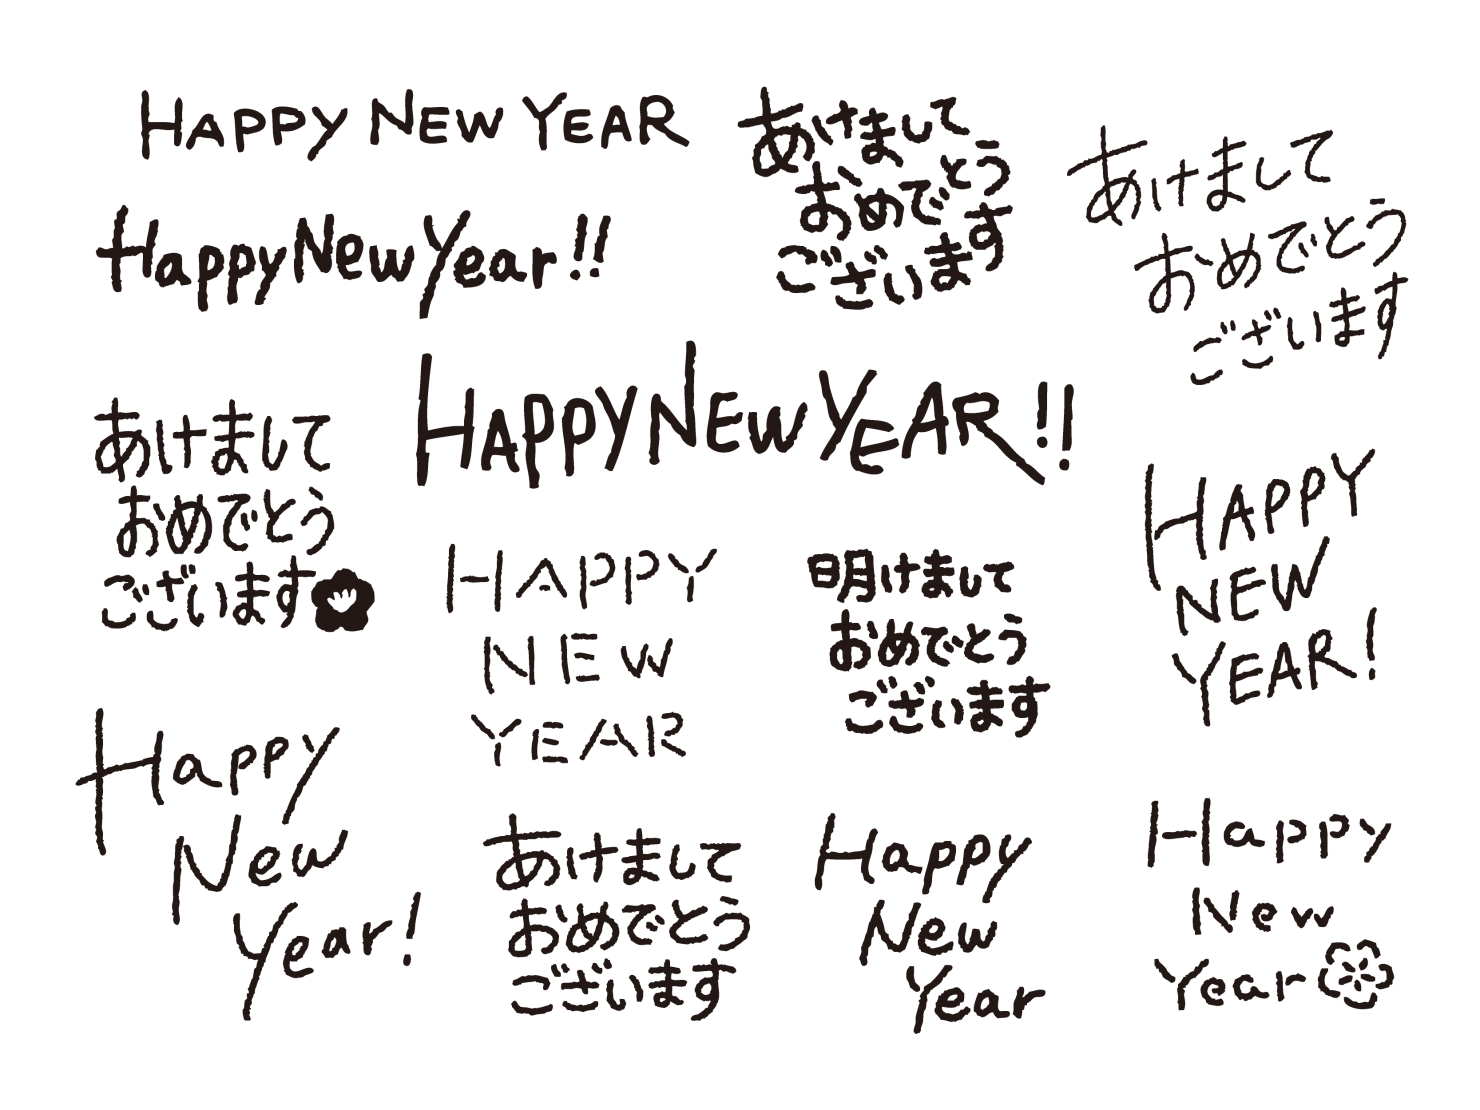 HAPPY NEW YEAR
あけまして
おめでとう
ございます
あけまして
おめでとう
ございます
Happy New Year!!
HAPPY NEW YEAR!!
あけまして
おめでとう
ございます
HAPPY
NEW
YEAR!
HAPPY
NEW
YEAR
明けまして
おめでとう
ございます
Happy
New
Year!
あけまして
おめでとう
ございます
Happy
New
Year
Happy
New
Year